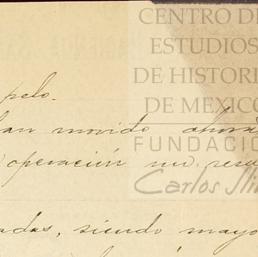 CENTRO DE
ESTUDIOS
DE HISTORI
DE MEXICO
FUNDACIÓ
Carlos Sli
pelo.
han movido ahora
operación no resu
adas, siendo mayo